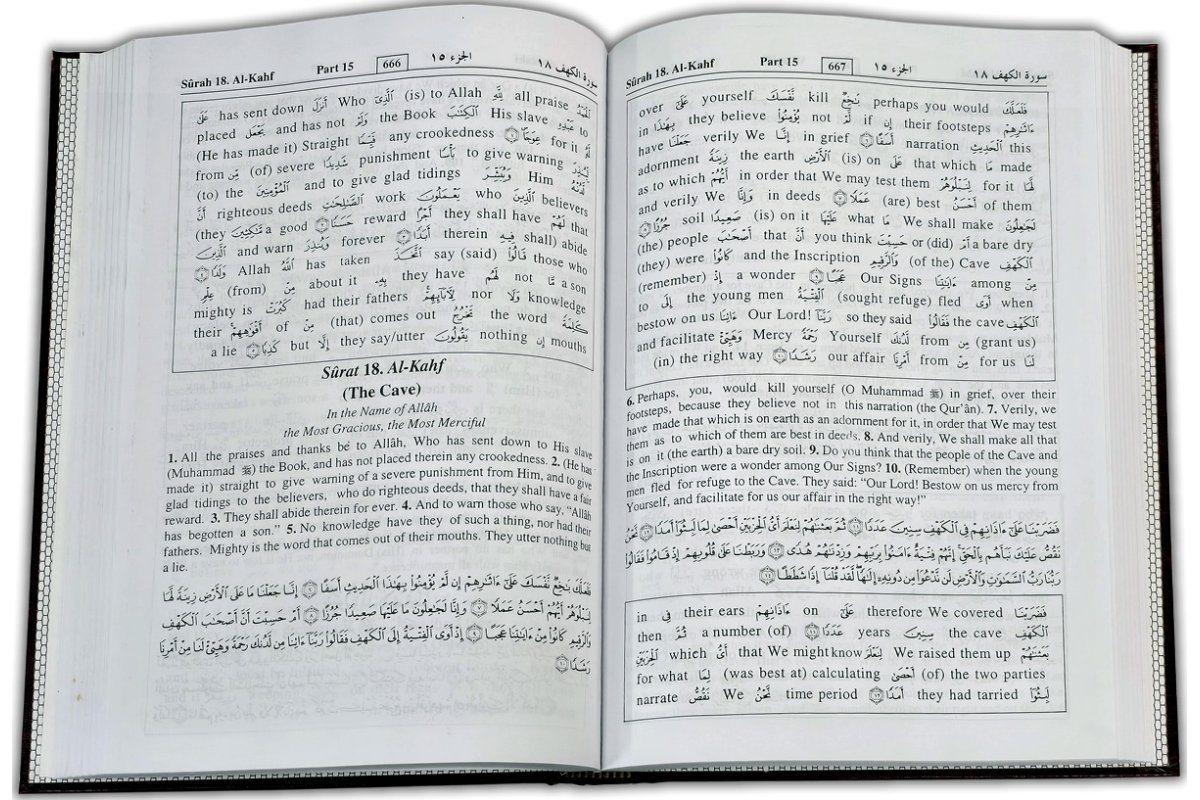 Sûrah 18. Al-Kahf Part 15 666 الجزء ١٥ سورة الكهف ١٨
عَلَىٰ has sent down أَنزَلَ Who ٱلَّذِىٓ (is) to Allah لِلَّهِ all praise ٱلْحَمْدُ
placed يَجْعَل and has not وَلَمْ the Book ٱلْكِتَٰبَ His slave عَبْدِهِ to
(He has made it) Straight قَيِّمًا any crookedness ۝١ عِوَجَا for it لَّهُ
from مِّن (of) severe شَدِيدًا punishment بَأْسًا to give warning لِّيُنذِرَ
(to) the ٱلْمُؤْمِنِينَ and to give glad tidings وَيُبَشِّرَ Him لَّدُنْهُ
أَنَّ righteous deeds ٱلصَّٰلِحَٰتِ work يَعْمَلُونَ who ٱلَّذِينَ believers
(they مَّٰكِثِينَ a good ۝٢ حَسَنًا reward أَجْرًا they shall have لَهُمْ that
ٱلَّذِينَ and warn وَيُنذِرَ forever ۝٣ أَبَدًا therein فِيهِ shall) abide
۝٤ وَلَدًا Allah ٱللَّهُ has taken ٱتَّخَذَ say (said) قَالُوا۟ those who
عِلْمٍ (from) مِنْ about it بِهِۦ they have لَهُم not مَّا a son
mighty is كَبُرَتْ had their fathers لِـَٔابَآئِهِمْ nor وَلَا knowledge
their أَفْوَٰهِهِمْ of مِنْ (that) comes out تَخْرُجُ the word كَلِمَةً
a lie ۝٥ كَذِبًا but إِلَّا they say/utter يَقُولُونَ nothing إِن mouths
Sûrat 18. Al-Kahf
(The Cave)
In the Name of Allâh
the Most Gracious, the Most Merciful
1. All the praises and thanks be to Allâh, Who has sent down to His slave
(Muhammad ﷺ) the Book, and has not placed therein any crookedness. 2. (He has
made it) straight to give warning of a severe punishment from Him, and to give
glad tidings to the believers, who do righteous deeds, that they shall have a fair
reward. 3. They shall abide therein for ever. 4. And to warn those who say, "Allâh
has begotten a son." 5. No knowledge have they of such a thing, nor had their
fathers. Mighty is the word that comes out of their mouths. They utter nothing but
a lie.
فَلَعَلَّكَ بَٰخِعٌ نَّفْسَكَ عَلَىٰٓ ءَاثَٰرِهِمْ إِن لَّمْ يُؤْمِنُوا۟ بِهَٰذَا ٱلْحَدِيثِ أَسَفًا ۝٦ إِنَّا جَعَلْنَا مَا عَلَى ٱلْأَرْضِ زِينَةً لَّهَا
لِنَبْلُوَهُمْ أَيُّهُمْ أَحْسَنُ عَمَلًا ۝٧ وَإِنَّا لَجَٰعِلُونَ مَا عَلَيْهَا صَعِيدًا جُرُزًا ۝٨ أَمْ حَسِبْتَ أَنَّ أَصْحَٰبَ ٱلْكَهْفِ
وَٱلرَّقِيمِ كَانُوا۟ مِنْ ءَايَٰتِنَا عَجَبًا ۝٩ إِذْ أَوَى ٱلْفِتْيَةُ إِلَى ٱلْكَهْفِ فَقَالُوا۟ رَبَّنَآ ءَاتِنَا مِن لَّدُنكَ رَحْمَةً وَهَيِّئْ لَنَا مِنْ أَمْرِنَا
رَشَدًا ۝١٠
Sûrah 18. Al-Kahf Part 15 667 الجزء ١٥ سورة الكهف ١٨
over عَلَىٰٓ yourself نَّفْسَكَ kill بَٰخِعٌ perhaps you would فَلَعَلَّكَ
in بِهَٰذَا they believe يُؤْمِنُوا۟ not لَّمْ if إِن their footsteps ءَاثَٰرِهِمْ
have جَعَلْنَا verily We إِنَّا in grief ۝٦ أَسَفًا narration ٱلْحَدِيثِ this
adornment زِينَةً the earth ٱلْأَرْضِ (is) on عَلَى that which مَا made
as to which أَيُّهُمْ in order that We may test them لِنَبْلُوَهُمْ for it لَّهَا
and verily We وَإِنَّا in deeds ۝٧ عَمَلًا (are) best أَحْسَنُ of them
۝٨ جُرُزًا soil صَعِيدًا (is) on it عَلَيْهَا what مَا We shall make لَجَٰعِلُونَ
(the) people أَصْحَٰبَ that أَنَّ you think حَسِبْتَ or (did) أَمْ a bare dry
(they) were كَانُوا۟ and the Inscription وَٱلرَّقِيمِ (of the) Cave ٱلْكَهْفِ
(remember) إِذْ a wonder ۝٩ عَجَبًا Our Signs ءَايَٰتِنَا among مِنْ
to إِلَى the young men ٱلْفِتْيَةُ (sought refuge) fled أَوَى when
bestow on us ءَاتِنَا Our Lord! رَبَّنَآ so they said فَقَالُوا۟ the cave ٱلْكَهْفِ
and facilitate وَهَيِّئْ Mercy رَحْمَةً Yourself لَّدُنكَ from مِن (grant us)
(in) the right way ۝١٠ رَشَدًا our affair أَمْرِنَا from مِنْ for us لَنَا
6. Perhaps, you, would kill yourself (O Muhammad ﷺ) in grief, over their
footsteps, because they believe not in this narration (the Qur'ân). 7. Verily, we
have made that which is on earth as an adornment for it, in order that We may test
them as to which of them are best in deeds. 8. And verily, We shall make all that
is on it (the earth) a bare dry soil. 9. Do you think that the people of the Cave and
the Inscription were a wonder among Our Signs? 10. (Remember) when the young
men fled for refuge to the Cave. They said: "Our Lord! Bestow on us mercy from
Yourself, and facilitate for us our affair in the right way!"
فَضَرَبْنَا عَلَىٰٓ ءَاذَانِهِمْ فِى ٱلْكَهْفِ سِنِينَ عَدَدًا ۝١١ ثُمَّ بَعَثْنَٰهُمْ لِنَعْلَمَ أَىُّ ٱلْحِزْبَيْنِ أَحْصَىٰ لِمَا لَبِثُوٓا۟ أَمَدًا ۝١٢ نَّحْنُ
نَقُصُّ عَلَيْكَ نَبَأَهُم بِٱلْحَقِّ إِنَّهُمْ فِتْيَةٌ ءَامَنُوا۟ بِرَبِّهِمْ وَزِدْنَٰهُمْ هُدًى ۝١٣ وَرَبَطْنَا عَلَىٰ قُلُوبِهِمْ إِذْ قَامُوا۟ فَقَالُوا۟
رَبُّنَا رَبُّ ٱلسَّمَٰوَٰتِ وَٱلْأَرْضِ لَن نَّدْعُوَا۟ مِن دُونِهِۦٓ إِلَٰهًا لَّقَدْ قُلْنَآ إِذًا شَطَطًا ۝١٤
in فِى their ears ءَاذَانِهِمْ on عَلَىٰٓ therefore We covered فَضَرَبْنَا
then ثُمَّ a number (of) ۝١١ عَدَدًا years سِنِينَ the cave ٱلْكَهْفِ
ٱلْحِزْبَيْنِ which أَىُّ that We might know لِنَعْلَمَ We raised them up بَعَثْنَٰهُمْ
for what لِمَا (was best at) calculating أَحْصَىٰ (of) the two parties
narrate نَقُصُّ We نَّحْنُ time period ۝١٢ أَمَدًا they had tarried لَبِثُوٓا۟